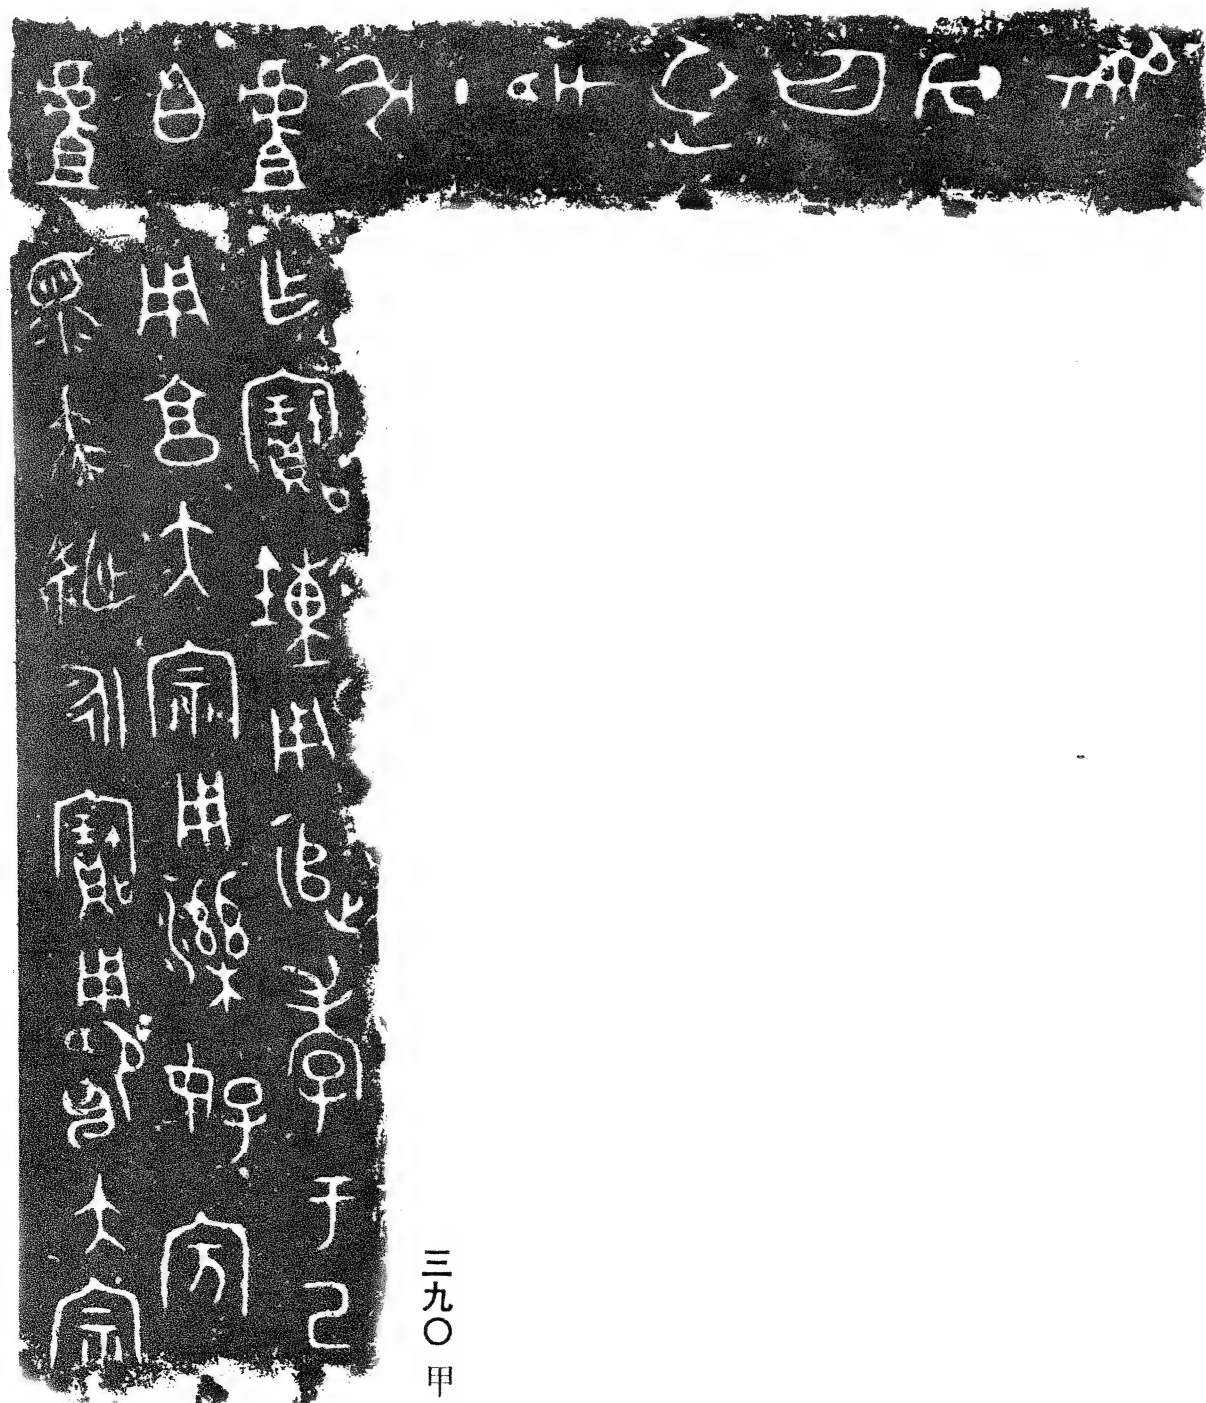 隹正月初吉丁亥
虘乍寶鐘用追孝于己
白用享大宗用濼好宾
虘眔蔡姬永寶用卲大宗
三九〇 甲